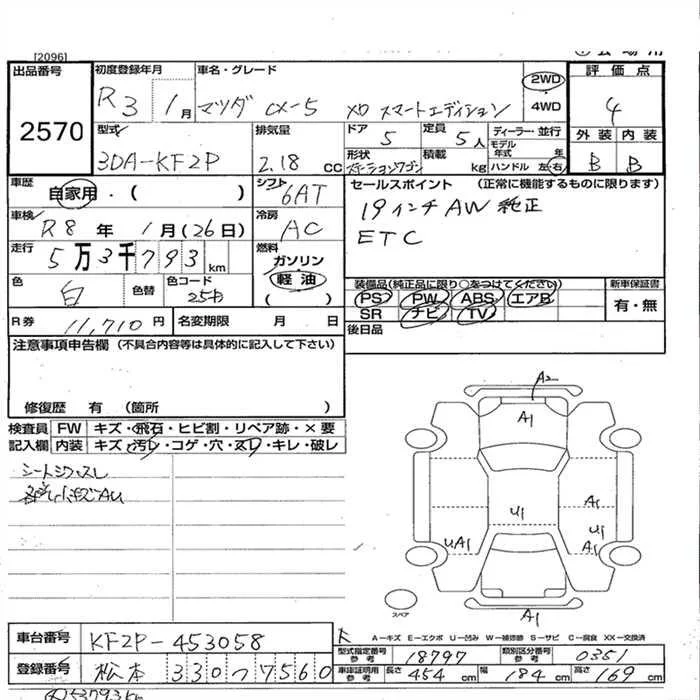 [2096]
出品番号 初度登録年月 車名・グレード 2WD 評価点
2570 R3 1月 マツダ CX-5 XD スマートエディション 4WD 4
型式 排気量 ドア 定員 ディーラー・並行 外装 内装
3DA-KF2P 2.18 CC 5 5人 モデル年式 年 B B
形状 ステーションワゴン 積載 kg ハンドル 左・右
車歴 自家用・( ) シフト 6AT セールスポイント (正常に機能するものに限ります)
車検 R8年 1月(26日) 冷房 AC 19インチAW 純正
ETC
走行 5万3千793km 燃料 ガソリン
軽油
( )
色 白 色替 色コード 25D
装備品(純正品に限り○をつけてください) 新車保証書
PS PW ABS エアB 有・無
SR ナビ TV
R券 11,710円 名変期限 月 日 後日品
注意事項申告欄 (不具合内容等は具体的に記入して下さい)
修復歴 有 (箇所 )
検査員 FW キズ・飛石・ヒビ割・リペア跡・×要
記入欄 内装 キズ・汚レ・コゲ・穴・スレ・キレ・破レ
シートシワ・スレ
A2
A1
U1
A1
U1
UA1
A1
A1
スペア
A-キズ E-エクボ U-凹み W-補修跡 S-サビ C-腐食 XX-交換済
車台番号 KF2P-453058
登録番号 松本 330 つ 7560
型式指定番号 参考 18797 類別区分番号 参考 0351
車庫証明用 参考 長さ 454cm 幅 184cm 高さ 169cm